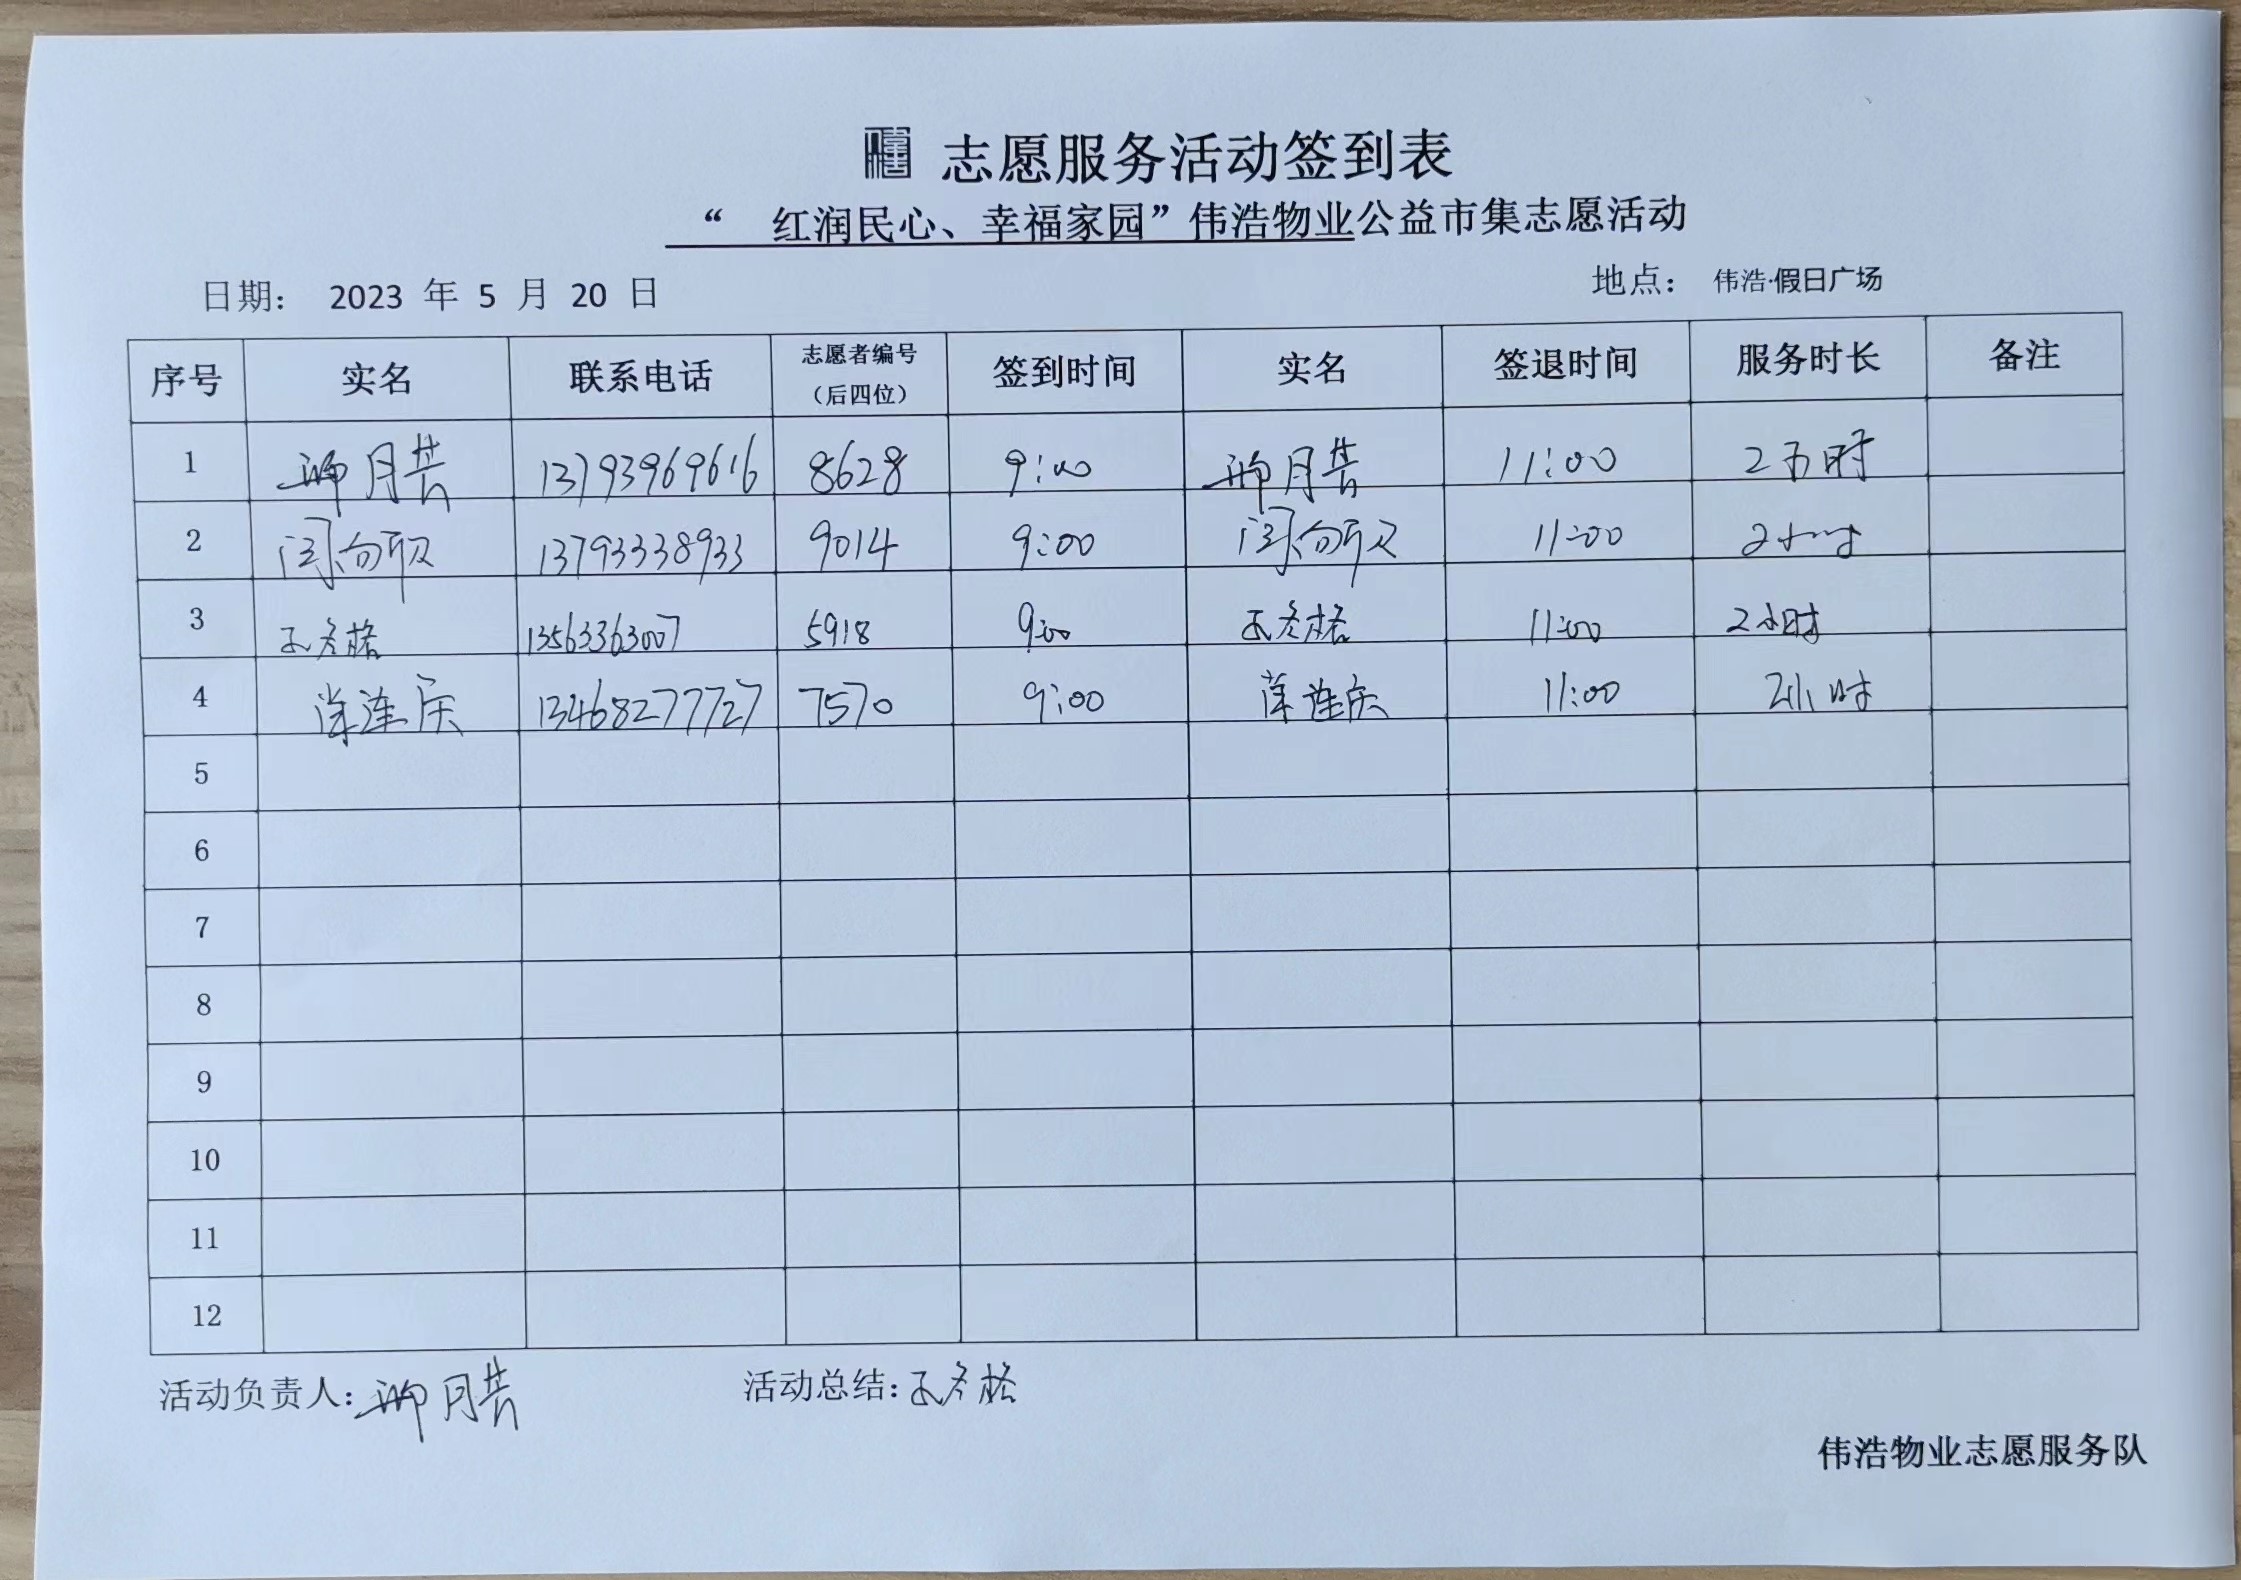 志愿服务活动签到表
“ 红润民心、幸福家园”伟浩物业公益市集志愿活动
日期： 2023 年 5 月 20 日 地点： 伟浩·假日广场
序号 实名 联系电话 志愿者编号（后四位） 签到时间 实名 签退时间 服务时长 备注
1 13793969616 8628 9:00 11:00 2小时
2 13793338933 9014 9:00 11:00 2小时
3 13563363007 5918 9:00 11:00 2小时
4 13468277727 7570 9:00 11:00 2小时
5
6
7
8
9
10
11
12
活动负责人： 活动总结：
伟浩物业志愿服务队